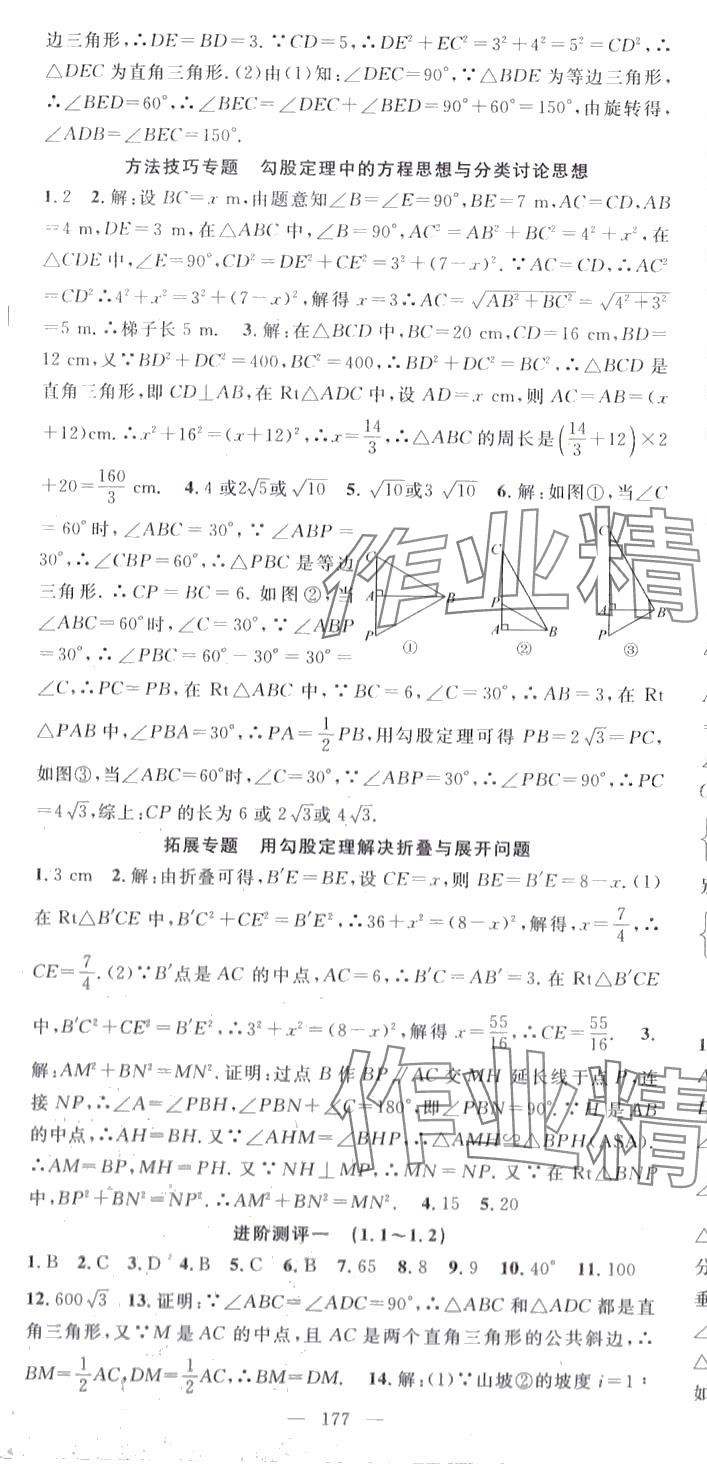 边三角形,∴DE=BD=3.∵CD=5,∴DE²+EC²=3²+4²=5²=CD²,∴
△DEC为直角三角形.(2)由(1)知:∠DEC=90°,∵△BDE为等边三角形,
∴∠BED=60°,∴∠BEC=∠DEC+∠BED=90°+60°=150°,由旋转得,
∠ADB=∠BEC=150°.
方法技巧专题 勾股定理中的方程思想与分类讨论思想
1.2 2.解:设BC=x m,由题意知∠B=∠E=90°,BE=7 m,AC=CD,AB
=4 m,DE=3 m,在△ABC中,∠B=90°,AC²=AB²+BC²=4²+x²,在
△CDE中,∠E=90°,CD²=DE²+CE²=3²+(7-x)².∵AC=CD,∴AC²
=CD²∴4²+x²=3²+(7-x)²,解得x=3∴AC=√(AB²+BC²)=√(4²+3²)
=5 m.∴梯子长5 m. 3.解:在△BCD中,BC=20 cm,CD=16 cm,BD=
12 cm,又∵BD²+DC²=400,BC²=400,∴BD²+DC²=BC²,∴△BCD是
直角三角形,即CD⊥AB,在Rt△ADC中,设AD=x cm,则AC=AB=(x
+12)cm.∴x²+16²=(x+12)²,∴x=14/3,∴△ABC的周长是(14/3+12)×2
+20=160/3 cm. 4.4或2√5或√10 5.√10或3√10 6.解:如图①,当∠C
=60°时,∠ABC=30°,∵∠ABP=
30°,∴∠CBP=60°,∴△PBC是等边
三角形.∴CP=BC=6.如图②,当
∠ABC=60°时,∠C=30°,∵∠ABP
=30°,∴∠PBC=60°-30°=30°=
C A B P ①
C P A B ②
③
∠C,∴PC=PB,在Rt△ABC中,∵BC=6,∠C=30°,∴AB=3,在Rt
△PAB中,∠PBA=30°,∴PA=1/2PB,用勾股定理可得PB=2√3=PC,
如图③,当∠ABC=60°时,∠C=30°,∵∠ABP=30°,∴∠PBC=90°,∴PC
=4√3,综上:CP的长为6或2√3或4√3.
拓展专题 用勾股定理解决折叠与展开问题
1.3 cm 2.解:由折叠可得,B′E=BE,设CE=x,则BE=B′E=8-x.(1)
在Rt△B′CE中,B′C²+CE²=B′E²,∴36+x²=(8-x)²,解得,x=7/4,∴
CE=7/4.(2)∵B′点是AC的中点,AC=6,∴B′C=AB′=3.在Rt△B′CE
中,B′C²+CE²=B′E²,∴3²+x²=(8-x)²,解得x=55/16,∴CE=55/16. 3.
解:AM²+BN²=MN².证明:过点B作BP∥AC交MH延长线于点P,连
接NP,∴∠A=∠PBH,∠PBN+∠C=180°,即∠PBN=90°.∵H是AB
的中点,∴AH=BH.又∵∠AHM=∠BHP,∴△AMH≌△BPH(ASA).
∴AM=BP,MH=PH.又∵NH⊥MP,∴MN=NP.又∵在Rt△BNP
中,BP²+BN²=NP².∴AM²+BN²=MN². 4.15 5.20
进阶测评一 (1.1~1.2)
1.B 2.C 3.D 4.B 5.C 6.B 7.65 8.8 9.9 10.40° 11.100
12.600√3 13.证明:∵∠ABC=∠ADC=90°,∴△ABC和△ADC都是直
角三角形,又∵M是AC的中点,且AC是两个直角三角形的公共斜边,∴
BM=1/2AC,DM=1/2AC,∴BM=DM. 14.解:(1)∵山坡②的坡度i=1∶
— 177 —
作业精
作业精